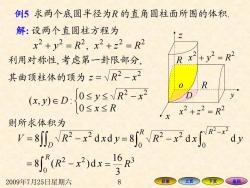 例5 求两个底圆半径为R 的直角圆柱面所围的体积.
解: 设两个直圆柱方程为
x² + y² = R², x² + z² = R²
利用对称性, 考虑第一卦限部分,
其曲顶柱体的顶为 z = √(R² − x²)
(x, y) ∈ D: { 0 ≤ y ≤ √(R² − x²)
0 ≤ x ≤ R
则所求体积为
V = 8∬_D √(R² − x²) d x d y = 8∫₀^R √(R² − x²) d x ∫₀^√(R²−x²) d y
= 8∫₀^R (R² − x²) d x = 16/3 R³
z
R
x² + y² = R²
o
R
D
y
x
x² + z² = R²
2009年7月25日星期六
8